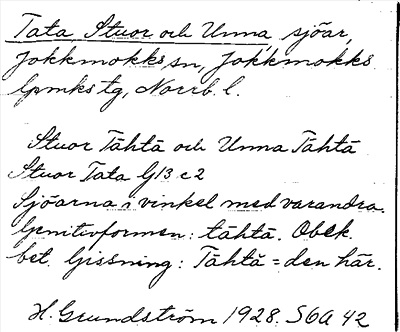 Tata, Stuor och Unna, sjöar,
Jokkmokks sn, Jokkmokks
lpmks tg, Norrb. l.
Stuor Tähtá och Unna Tähtá
Stuor Tata G13 c2
Sjöarna i vinkel med varandra.
Genitivformen: tähtá. Obek.
bet. Gissning: Tähtá = den här.
H. Grundström 1928. S6A 42